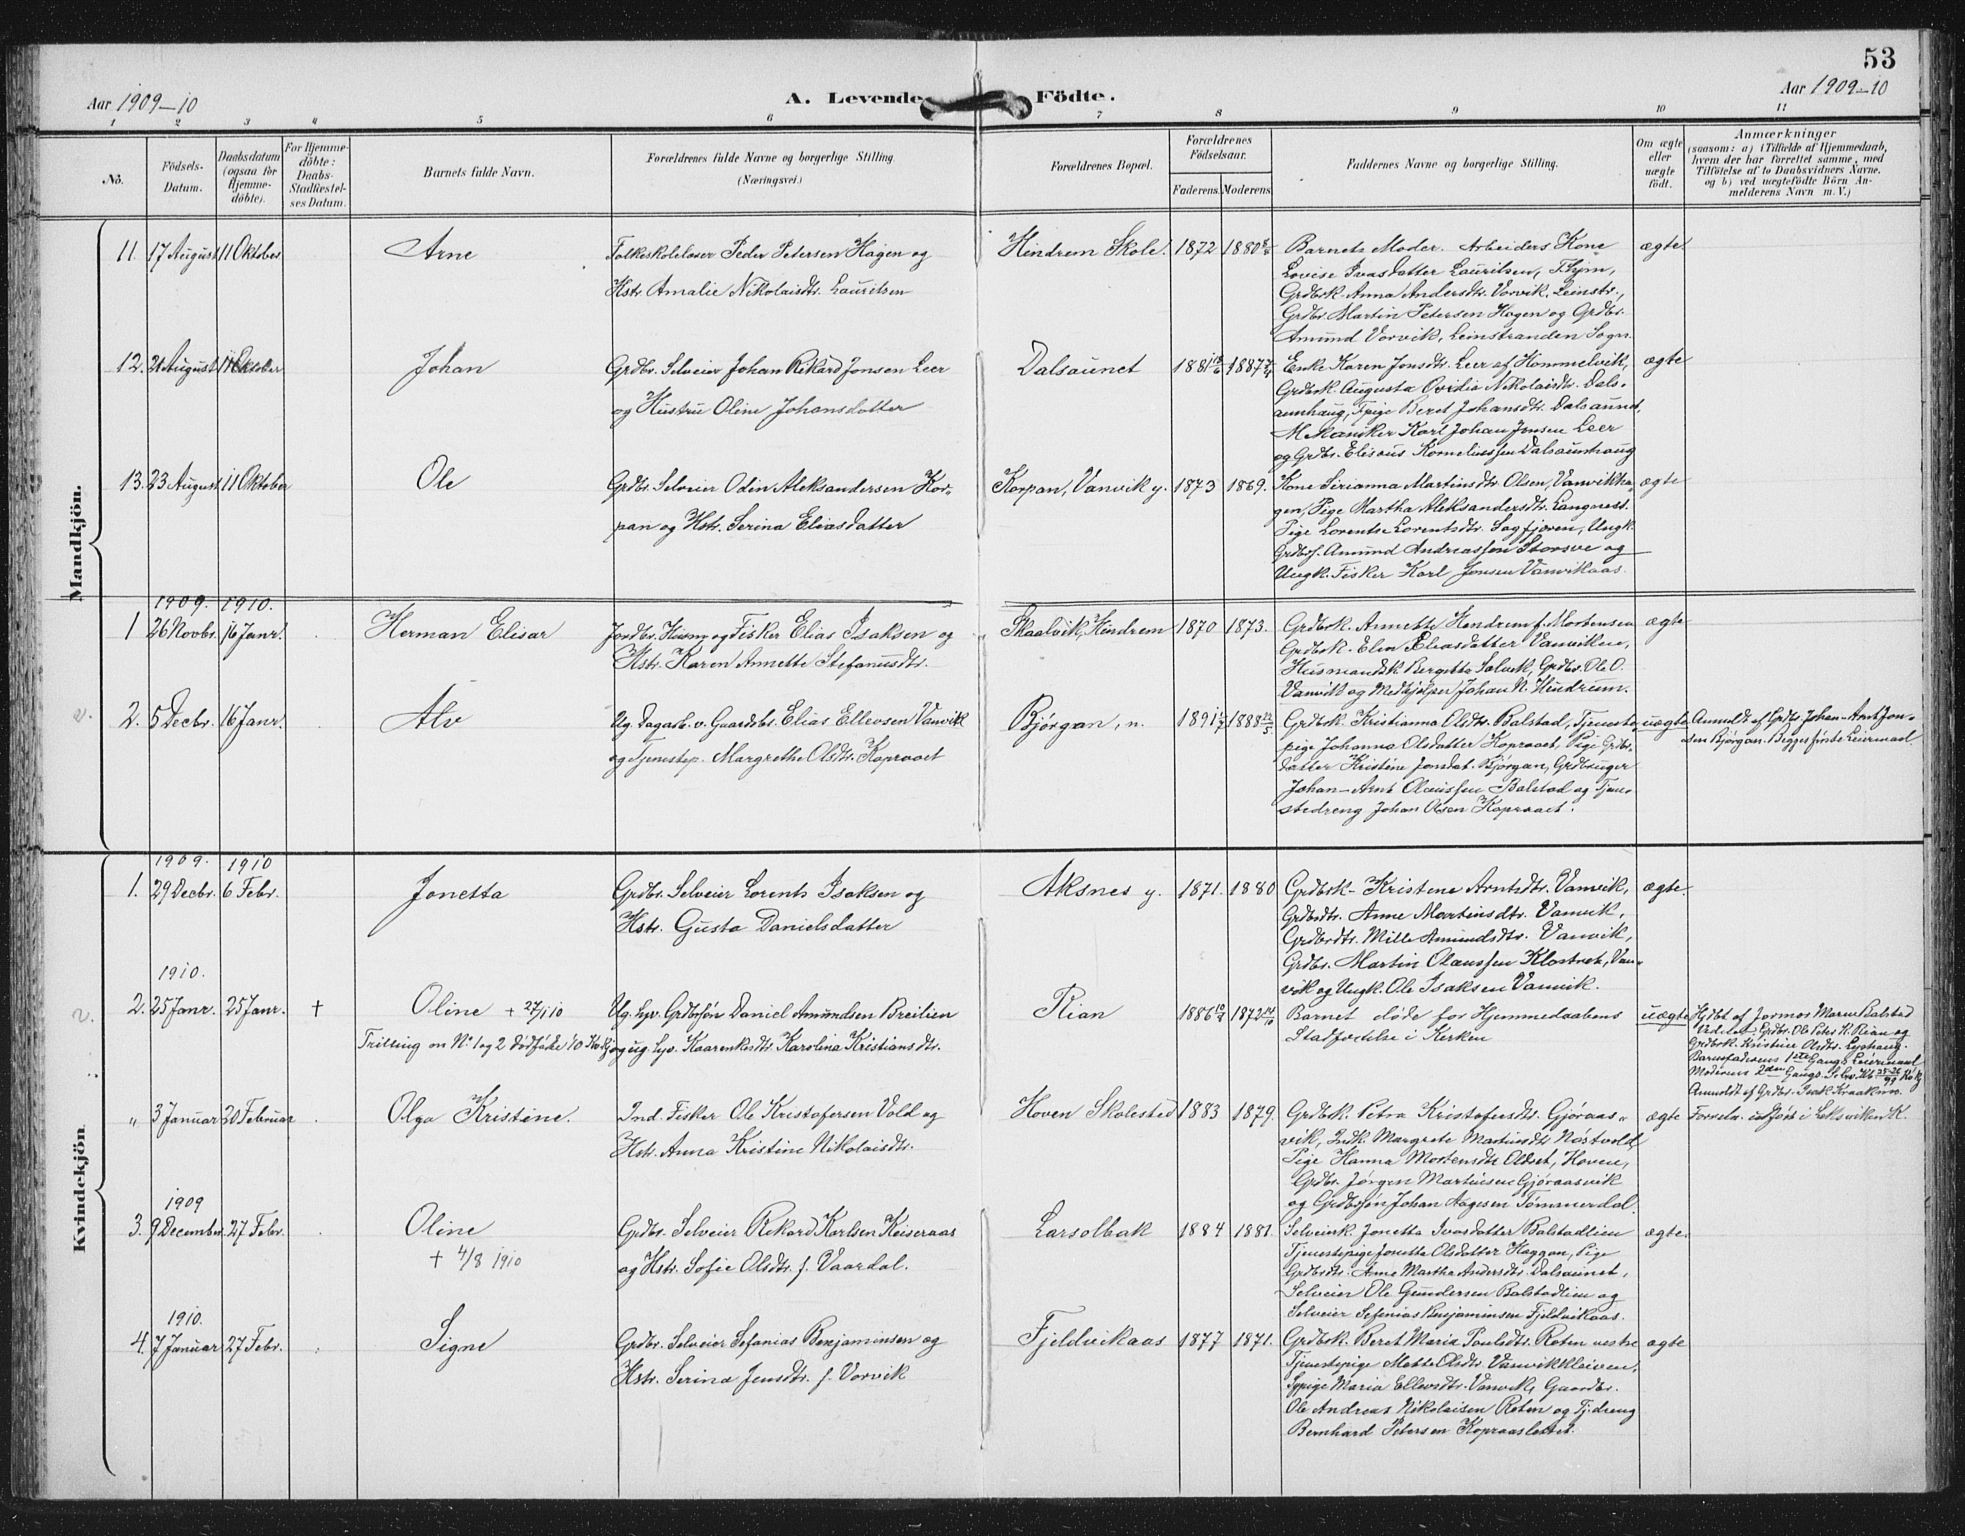 53
Aar 1909-10
A. Levende Födte.
Aar 1909-10
1 2 3 4 5 6 7 8 9 10 11
No.
Födsels-Datum.
Daabsdatum (ogsaa for Hjemme-döbte).
For Hjemme-döbte: Daabs-Stadfæstel-ses Datum.
Barnets fulde Navn.
Forældrenes fulde Navne og borgerlige Stilling.
(Næringsvei.)
Forældrenes Bopæl.
Forældrenes Födselsaar.
Faderens. Moderens
Faddernes Navne og borgerlige Stilling.
Om ægte eller uægte födt.
Anmærkninger
(saasom: a) i Tilfælde af Hjemmedaab,
hvem der har forrettet samme, med
Tilföielse af to Daabsvidners Navne.
og b) ved uægtefödte Börn An-
melderens Navn m. V.)
Mandkjön.
11. 17 August 11 Oktober Arne
Folkeskolelærer Peder Petersen Hagen og
Hstr. Amalie Nikolaisdtr. Lauritsen
Hindrem Skole. 1872 1880
Barnets Moder. Arbeiders Kone
Lovise Ivarsdatter Lauritsen, Thjm,
Grdbrk. Anna Andersdtr. Vorvik, Leinstr.,
Grdbr. Martin Petersen Hagen og Grdbr.
Amund Vorvik, Leinstranden Sogn.
ægte.
12. 21 August 11 Oktober Johan
Grdbr. Selveier Johan Rikard Jonsen Leer
og Hustru Oline Johansdatter
Dalsaunet 1881 1887
Enke Karen Jonsdtr. Leer af Hommelvik,
Grdbrk. Augusta Ovidia Nikolaisdtr. Dals-
aunhaug, Tpige Beret Johansdtr. Dalsaunet,
Mekaniker Karl Johan Jonsen Leer
og Grdbr. Elisæus Korneliussen Dalsaunhaug
ægte
13. 23 August 11 Oktober Ole
Grdbr. Selveier Odin Aleksandersen Kor-
pan og Hstr. Serina Eliasdatter
Korpan, Vanvik y. 1873 1869.
Kone Sirianna Martinsdtr. Olsen, Vanvikha-
gen, Pige Martha Aleksandersdtr. Langnest.
Pige Lorentse Lorentsdtr. Sagfjæren, Ungk.
Grdbrs. Amund Andreassen Storsve og
Ungk. Fisker Karl Jonsen Vanvikaas.
ægte
1909. 1910.
1 26 Novbr. 16 Janr. Herman Elisar
Jordbr. Husm. og Fisker Elias Isaksen og
Hstr. Karen Annette Stefanusdtr.
Skaalvik, Hindrem 1870 1873.
Grdbrk. Annette Hindrem f. Mortensen
Grdbrk. Elen Eliasdatter Vanviken,
Husmandsk. Bergitta Solvik, Grdbr. Ole O.
Vanvik og Medhjelper Johan N. Hindrum.
ægte
2. 5 Decbr. 16 Janr. Alv
Ug. Dagarb. v. Gaardsbr. Elias Ellevsen Vanvik
og Tjenestep. Margrethe Olsdtr. Kopraaet
Bjørgan, n. 1891 1888
Grdbrk. Kristianna Olsdtr. Balstad, Tjeneste-
pige Johanna Olsdatter Kopraaet, Pige Grdbr-
datter Kristine Jonsdat. Bjørgan, Grdbruger
Johan-Arnt Olaussen Balstad og Tjene-
stedreng Johan Olsen Kopraaet.
uægte
Anmeldt af Grdbr. Johan-Arnt Jon-
sen Bjørgan. Begges første Leiermaal.
Kvindekjön.
1909. 1910
1. 29 Decbr. 6 Febr. Jonetta
Grdbr. Selveier Lorents Isaksen og
Hstr. Gusta Danielsdatter
Aksnes y. 1871. 1880
Grdbrk. Kristine Arntsdtr. Vanvik,
Grdbrdtr. Anne Martinsdtr. Vanvik,
Grdbrdtr. Mille Amundsdtr. Vanvik,
Grdbr. Martin Olaussen Klostret, Van-
vik og Ungk. Ole Isaksen Vanvik.
ægte.
1910.
2. 25 Janr. 25 Janr. † Oline + 27/1 10
Trilling m No. 1 og 2 dødføde 10
Ug. Grdbrsøn Daniel Amundsen Breilien
og ug. Kaarenkesdtr. Karolina Kristiansdtr.
Rian 1886 1872
Barnet døde før Hjemmedaabens
Stadfæstelse i Kirken
uægte
Hjdbt af Jormor Maren Balstad
Vidner: Grdbr. Ole Peter H. Rian og
Grdbrk. Kristine Olsdtr.
Barnefaderens 1ste Gangs Leiermaal
Moderens 2den Gangs.
Anmeldt af Grdbr. Isak Kraakmo.
" 3 Januar 20 Februar Olga Kristine.
Ind. Fisker Ole Kristofersen Vold og
Hstr. Anna Kristine Nikolaisdtr.
Hoven Skolested 1883 1879.
Grdbrk. Petra Kristofersdtr. Gjøraas-
vik, Indk. Margrete Martinsdtr. Nøstvold,
Pige Hanna Mortensdtr. Oldret, Hoven,
Grdbr. Jørgen Martinsen Gjøraasvik
og Grdbrsøn Johan Aagesen Tømmerdal.
ægte
Forretn. udførs i Leksviken K.
1909
3. 9 December 27 Febr. Oline
+ 4/8 1910
Grdbr. Selveier Rikard Karlsen Keiseraas
og Hstr. Sofie Olsdtr. f. Vaardal.
Larsolbak 1884 1881.
Selveierk. Jonetta Ivarsdatter Balstadlien
Tjenestepige Jonette Olsdatter Haggan, Pige
Grdbrdtr. Anne Martha Andersdtr. Dalsaunet,
Selveier Ole Gundersen Balstadlien og
Selveier Sefanias Benjaminsen Fjeldvikaas.
ægte.
1910.
4. 7 Januar 27 Febr. Signe
Grdbr. Selveier Sefanias Benjaminsen og
Hstr. Serina Jensdtr. f. Vorvik
Fjeldvikaas 1877 1871.
Grdbrk. Beret Maria Paulsdtr. Roten vestre
Tjenestepige Mette Olsdtr. Vanvikkleiven,
Sypige Maria Ellevsdtr. Vanvik, Gaardbr.
Ole Andreas Nikolaisen Roten og Tj.dreng
Bernhard Petersen Kopraasletttet.
ægte